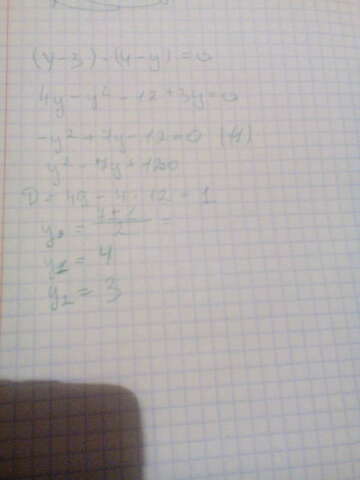 (y-3)·(4-y)=0
4y-y²-12+3y=0
-y²+7y-12=0 (-1)
y²-7y+12=0
D=49-4·12=1
y₁=
2
=
y₂=4
y₂=3